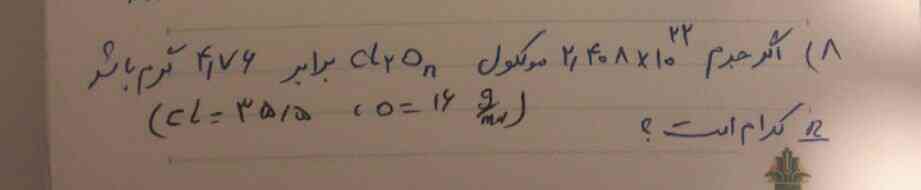 ۸) اگر جرم ۲,۴۰۸×۱۰^۲۲ مولکول Cl₂Oₙ برابر ۴,۷۶ گرم باشد
n کدام است ؟ (Cl = ۳۵,۵ ، O = ۱۶ g/mol)